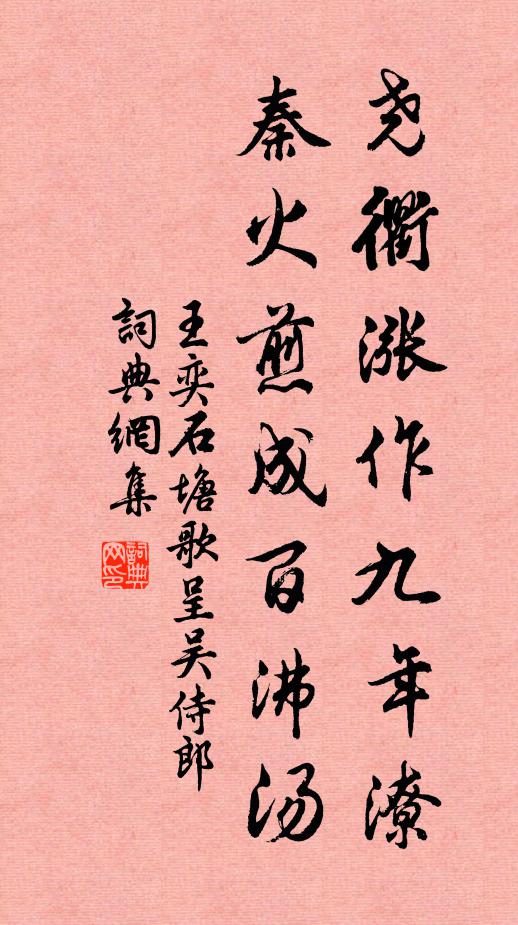 尧衢涨作九年潦
秦火煎成百沸汤
王奕石塘歌呈吴侍郎
詞典網集
詞典网印